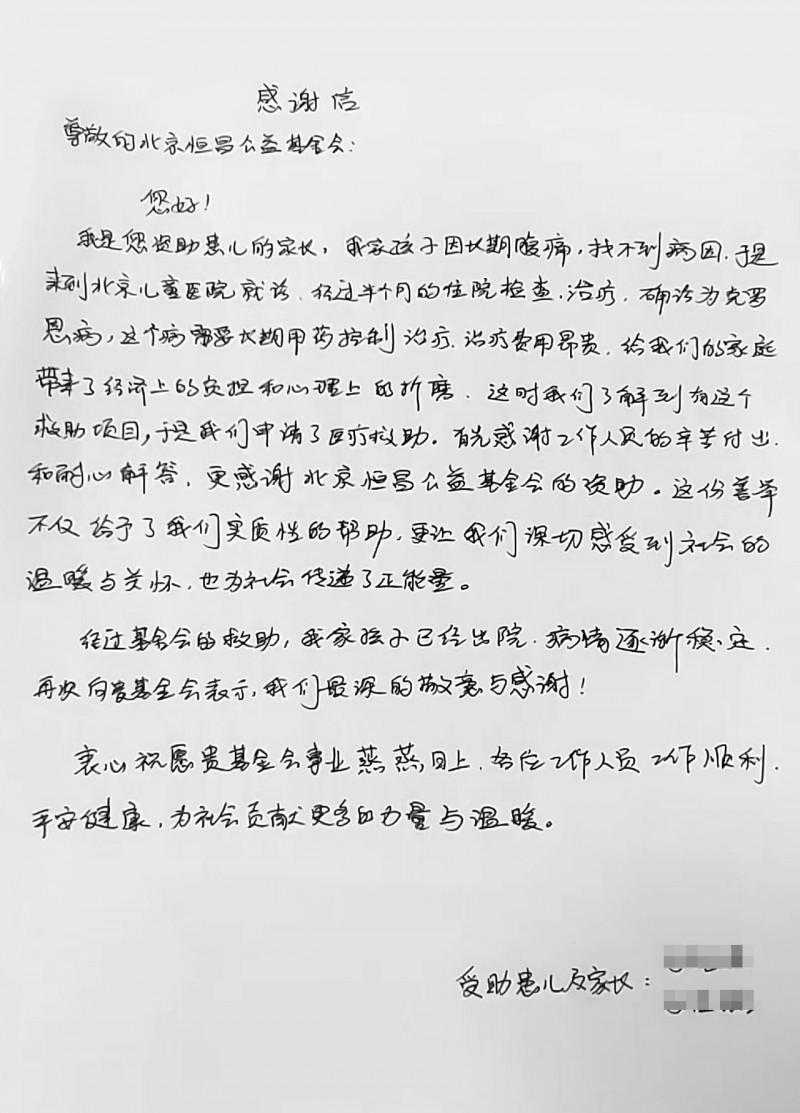 感谢信
尊敬的北京恒昌公益基金会：
您好！
我是您资助患儿的家长，我家孩子因长期腹痛，找不到病因，于是
来到北京儿童医院就诊，经过半个月的住院检查、治疗，确诊为克罗
恩病，这个病需要长期用药控制治疗，治疗费用昂贵，给我们的家庭
带来了经济上的负担和心理上的折磨，这时我们了解到有这个
救助项目，于是我们申请了医疗救助。首先感谢工作人员的辛苦付出
和耐心解答，更感谢北京恒昌公益基金会的资助。这份善举
不仅给予了我们实质性的帮助，更让我们深切感受到社会的
温暖与关怀，也为社会传递了正能量。
经过基金会的救助，我家孩子已经出院，病情逐渐稳定，
再次向贵基金会表示，我们最深的敬意与感谢！
衷心祝愿贵基金会事业蒸蒸日上，各位工作人员工作顺利，
平安健康，为社会贡献更多的力量与温暖。
受助患儿及家长：